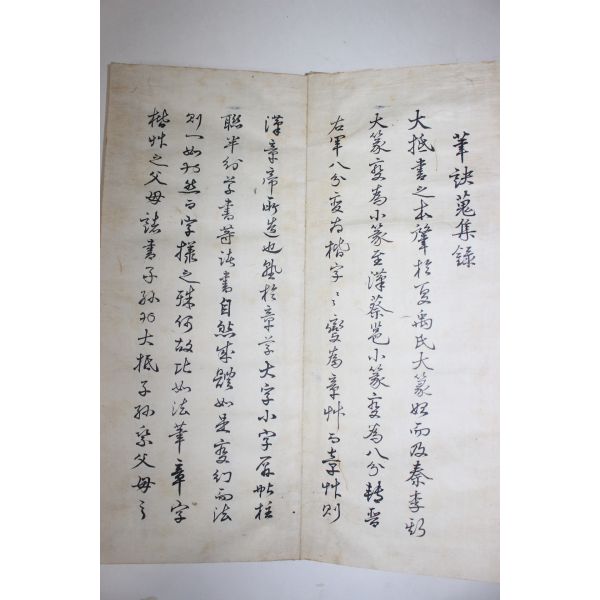 筆訣蒐集錄
大抵書之本肇於夏禹氏大篆始而及秦李斯
大篆變為小篆至漢蔡邕小篆変為八分轉晉
右軍八分変為楷字〻變為章艸而章艸則
漢章帝所造也然於章草大字小字屏帖柱
聯半幼學書等諸書自然成體如是変幻而法
則一如為然而字様之殊何故比如法筆章字
楷艸之父母諸書子孫為大抵子孫象父母之